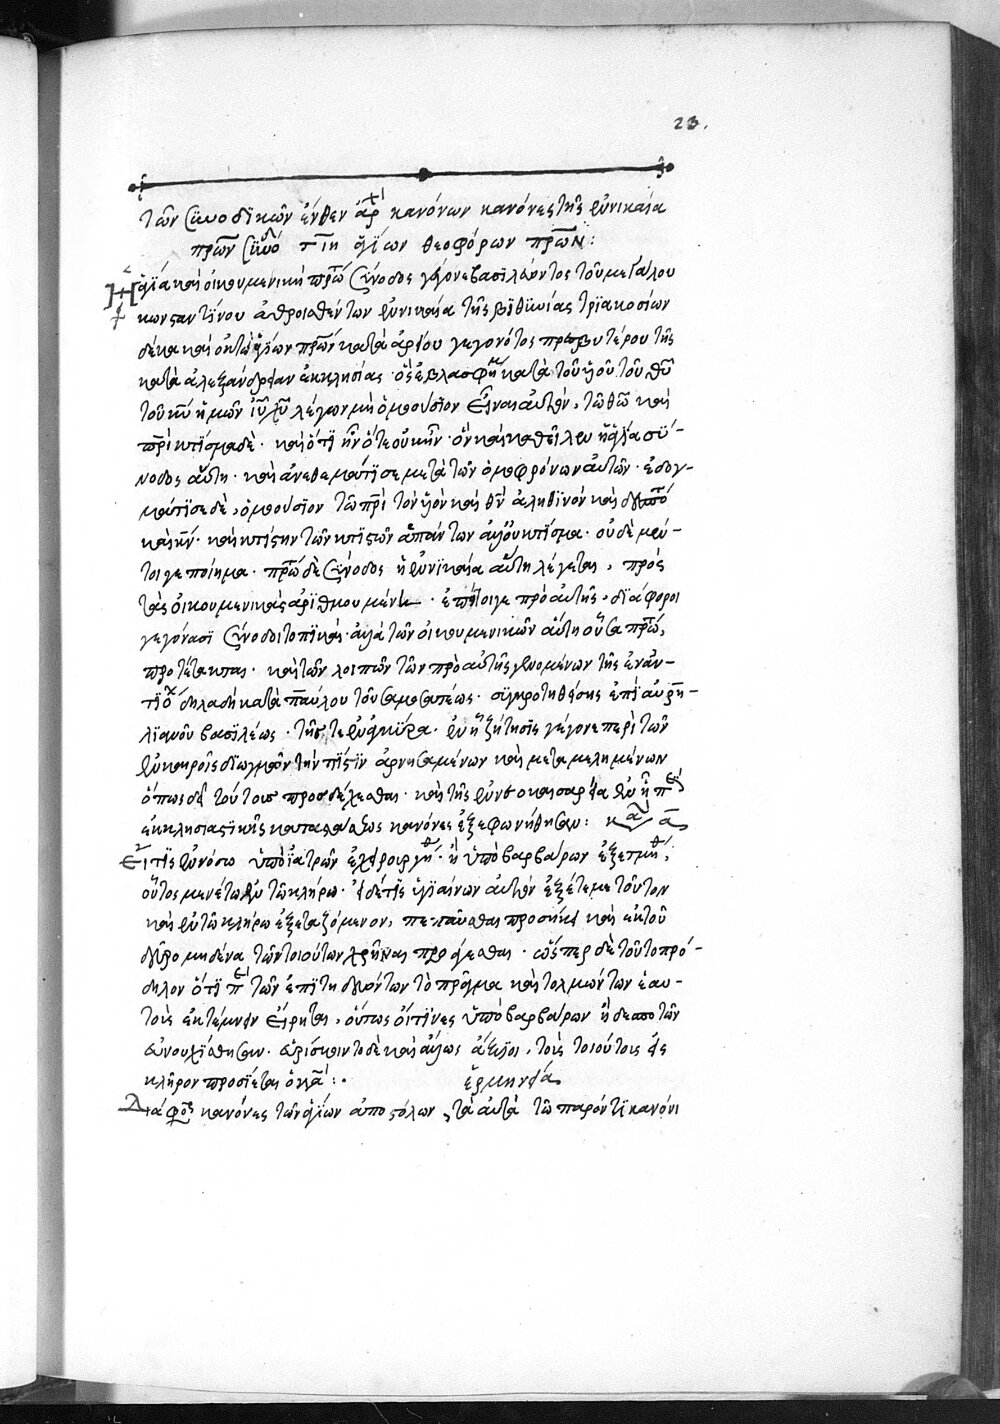 23.
τῶν συνοδικῶν ἔνθεν ἀρχ κανόνων κανόνες τῆς ἐν νικαία
πρώτης συνόδ τιη ἁγίων θεοφόρων πρων:
Ἡ ἁγία καὶ οἰκουμενικὴ πρώ σύνοδος γέγονε βασιλεύοντος τοῦ μεγάλου
κωνσταντίνου ἀθροισθέντων ἐν νικαία τῆς βιθυνίας τριακοσίων
δέκα καὶ ὀκτὼ ἁγίων πρων κατὰ ἀρείου γεγονότος πρεσβυτέρου τῆς
κατὰ ἀλεξάνδρειαν ἐκκλησίας· ὃς ἐβλασφη κατὰ τοῦ υἱοῦ τοῦ θυ
τοῦ κυ ἡμῶν ιυ χυ λέγων μὴ ὁμοούσιον εἶναι αὐτὸν, τῶ θω καὶ
πρὶ κτίσμα δὲ· καὶ ὅτι ἦν ὅτε οὐκ ἦν· ὃν καὶ καθεῖλεν ἡ ἁγία σύ-
νοδος αὕτη· καὶ ἀνεθεμάτισε μετὰ τῶν ὁμοφρόνων αὐτῶν· ἐδογ-
μάτισε δὲ, ὁμοούσιον τῶ πρὶ τὸν υἱὸν καὶ θν ἀληθινὸν καὶ δεσπό
καὶ κν· καὶ κτίστην τῶν κτιστῶν ἁπάντων ἀλλ' οὐ κτίσμα· οὐδὲ μέν-
τοιγε ποίημα· πρώ δὲ σύνοδος ἡ ἐν νικαία αὕτη λέγεται, πρὸς
τὰς οἰκουμενικὰς ἀριθμουμένη· ἐπείτοιγε πρὸ αὐτῆς, διάφοροι
γεγόνασι σύνοδοι τοπικαὶ· ἀλλὰ τῶν οἰκουμενικῶν αὕτη οὖσα πρώ,
προτέτακται· καὶ τῶν λοιπῶν τῶν πρὸ αὐτῆς γενομένων τῆς ἐν ἀν-
τιοχ δηλαδὴ κατὰ παύλου τοῦ σαμοσατέως· συγκροτηθείσης ἐπὶ αὐρη-
λιανοῦ βασιλέως· τῆς τε ἐν ἀγκύρα· ἐν ἧ ζήτησις γέγονε περὶ τῶν
ἐν καιροῖς διωγμῶν τὴν πίστιν ἀρνησαμένων καὶ μεταμελημένων
ὅπως δεῖ τούτους προσδέχεσθαι· καὶ τῆς ἐν νεοκαισαρεία ἐν ἧ πε
ἐκκλησιαστικῆς καταστάσεως κανόνες ἐξεφωνήθησαν: κα α
Εἴ τις ἐν νόσω ὑπὸ ἰατρῶν ἐχειρουργήθ· ἢ ὑπὸ βαρβάρων ἐξετμήθ,
οὗτος μενέτω ἐν τῶ κλήρω· εἰ δέ τις ὑγιαίνων αὑτὸν ἐξέτεμε τοῦτον
καὶ ἐν τῶ κλήρω ἐξεταζόμενον, πεπαῦσθαι προσήκει καὶ ἐκ τοῦ
δεῦρο μηδένα τῶν τοιούτων χρῆναι προάγεσθαι· ὥσπερ δὲ τοῦτο πρό-
δηλον ὅτι πε τῶν ἐπιτηδευόντων τὸ πρᾶγμα καὶ τολμώντων ἑαυ-
τοὺς ἐκτέμνειν εἴρηται, οὕτως οἵτινες ὑπὸ βαρβάρων ἢ δεσποτῶν
εὐνουχίσθησαν· εὑρίσκοιντο δὲ καὶ ἄλλως ἄξιοι, τοὺς τοιούτους εἰς
κλῆρον προσίεται ὁ κα:· ἑρμηνεία
Διάφοροι κανόνες τῶν ἁγίων ἀποστόλων, τὰ αὐτὰ τῶ παρόντι κανόνι